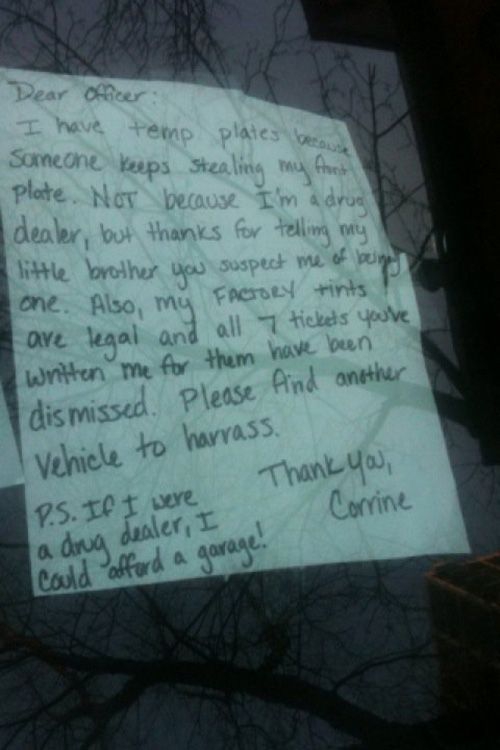 Dear Officer:
I have temp plates because
someone keeps stealing my front
plate. NOT because I'm a drug
dealer, but thanks for telling my
little brother you suspect me of being
one. Also, my FACTORY tints
are legal and all 7 tickets you've
written me for them have been
dismissed. Please find another
vehicle to harrass.
Thank you,
Corrine
P.S. If I were
a drug dealer, I
could afford a garage!